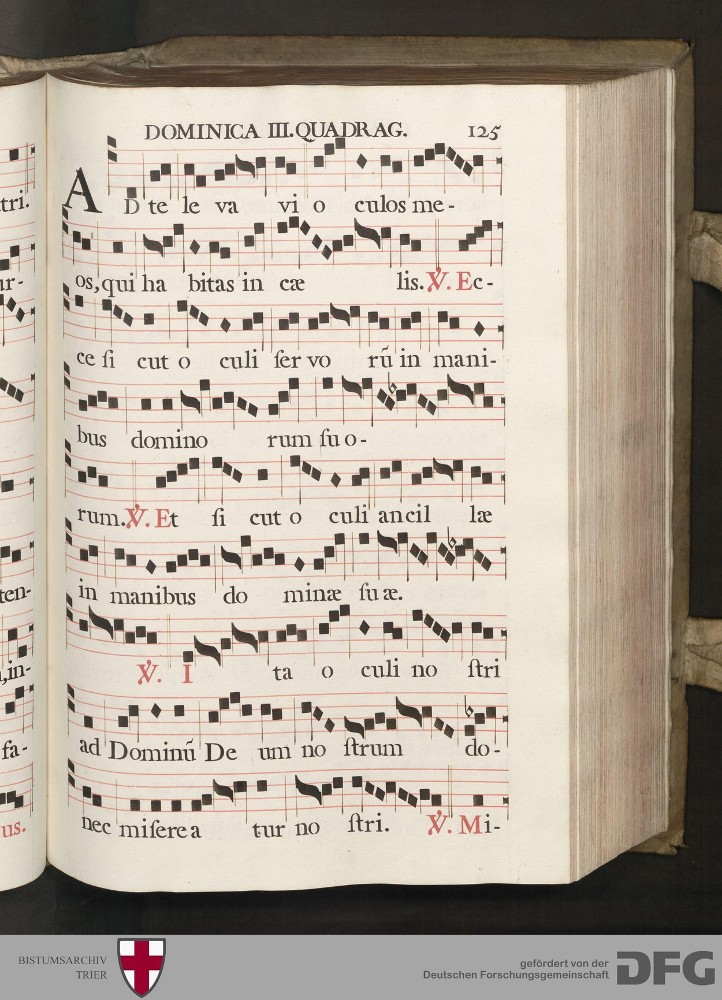 DOMINICA III. QUADRAG. 125
tri.
AD te le va vi o culos me-
ur-
os, qui ha bitas in cæ lis. ℣. Ec-
ce ſi cut o culi ſer vo rũ in mani-
bus domino rum ſu o-
rum. ℣. Et ſi cut o culi ancil læ
ten-
in manibus do minæ ſu æ.
,in-
℣. I ta o culi no ſtri
fa-
ad Dominũ De um no ſtrum do-
us.
nec miſere a tur no ſtri. ℣. Mi-
BISTUMSARCHIV
TRIER
gefördert von der
Deutschen Forschungsgemeinschaft
DFG